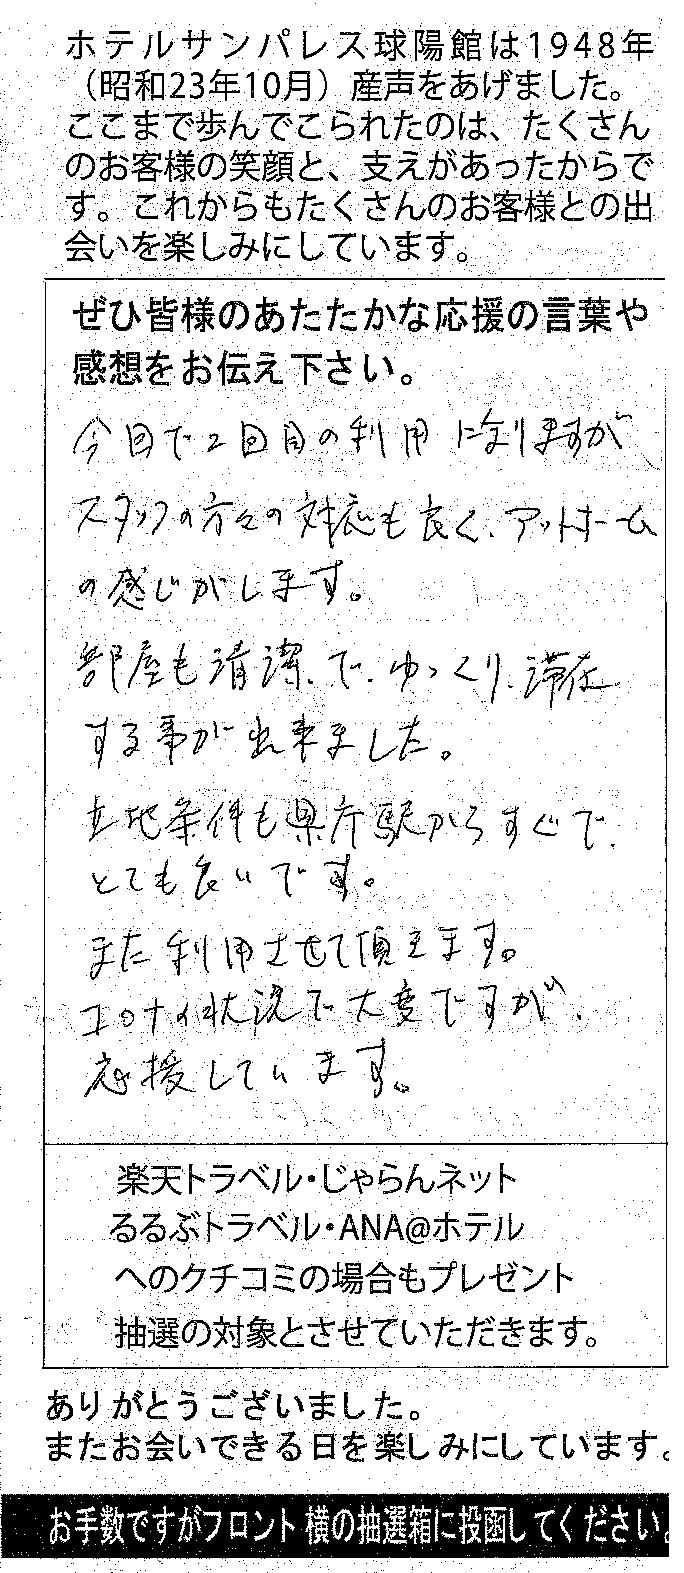 ホテルサンパレス球陽館は1948年
（昭和23年10月）産声をあげました。
ここまで歩んでこられたのは、たくさん
のお客様の笑顔と、支えがあったからで
す。これからもたくさんのお客様との出
会いを楽しみにしています。
ぜひ皆様のあたたかな応援の言葉や
感想をお伝え下さい。
今回で2回目の利用になりますが
スタッフの方々の対応も良く、アットホーム
の感じがします。
部屋も清潔で、ゆっくり、滞在
する事が出来ました。
立地条件も県庁駅からすぐで、
とても良いです。
また利用させて頂きます。
コロナの状況で大変ですが、
応援しています。
楽天トラベル・じゃらんネット
るるぶトラベル・ANA@ホテル
へのクチコミの場合もプレゼント
抽選の対象とさせていただきます。
ありがとうございました。
またお会いできる日を楽しみにしています。
お手数ですがフロント横の抽選箱に投函してください。